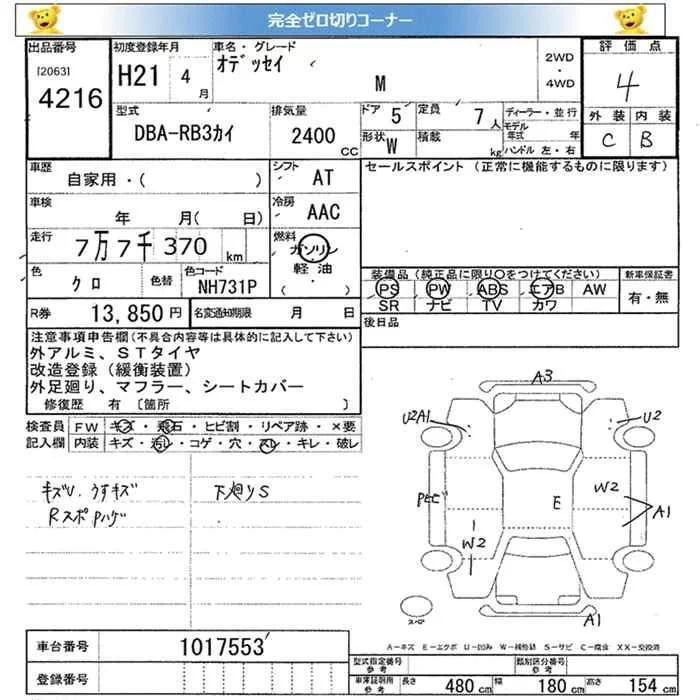 完全ゼロ切りコーナー
出品番号 初度登録年月 車名・グレード 評価点
[2063] 4216 H21 4月 オデッセイ M 2WD・4WD 4
外装 内装
C B
型式 排気量 ドア 5 定員 7人 ディーラー・並行
DBA-RB3カイ 2400CC 形状 W 積載 kg モデル年式 年
ハンドル 左・右
車歴 シフト セールスポイント(正常に機能するものに限ります)
自家用・( ) AT
車検 冷房
年 月( 日) AAC
走行 燃料
7万7千370km ガソリン
軽油
( ・ )
色 色替 色コード 装備品(純正品に限り○をつけてください) 新車保証書
クロ NH731P PS PW ABS エアB AW 有・無
SR ナビ TV カワ
R券 13,850円 名変通知期限 月 日 後日品
注意事項申告欄(不具合内容等は具体的に記入して下さい)
外アルミ、STタイヤ
改造登録(緩衝装置)
外足廻り、マフラー、シートカバー
修復歴 有〔箇所 〕
検査員 FW キズ・飛石・ヒビ割・リペア跡・×要
記入欄 内装 キズ・汚レ・コゲ・穴・スレ・キレ・破レ
キズU.うすキズ 下廻りS
RスポPハゲ
A3
U2A1 U2
W2
Pモビ E A1
W2
スペア A1
A-キズ E-エクボ U-凹み W-補修跡 S-サビ C-腐食 XX-交換済
車台番号 1017553
登録番号
型式指定番号 参考 類別区分番号 参考
車庫証明用 参考 長さ 480cm 幅 180cm 高さ 154cm